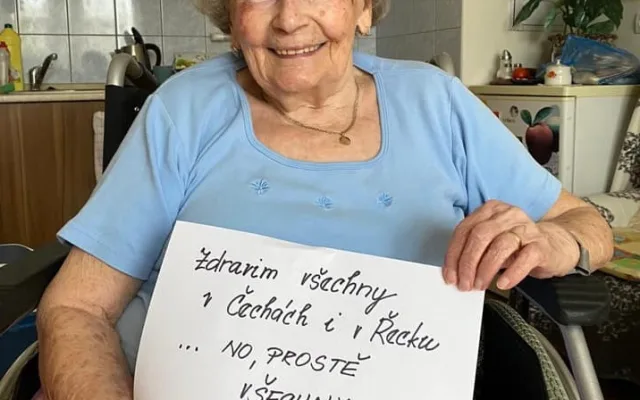 Zdravim všechny
v Čechách i v Řecku
... NO, PROSTĚ
VŠECHNY